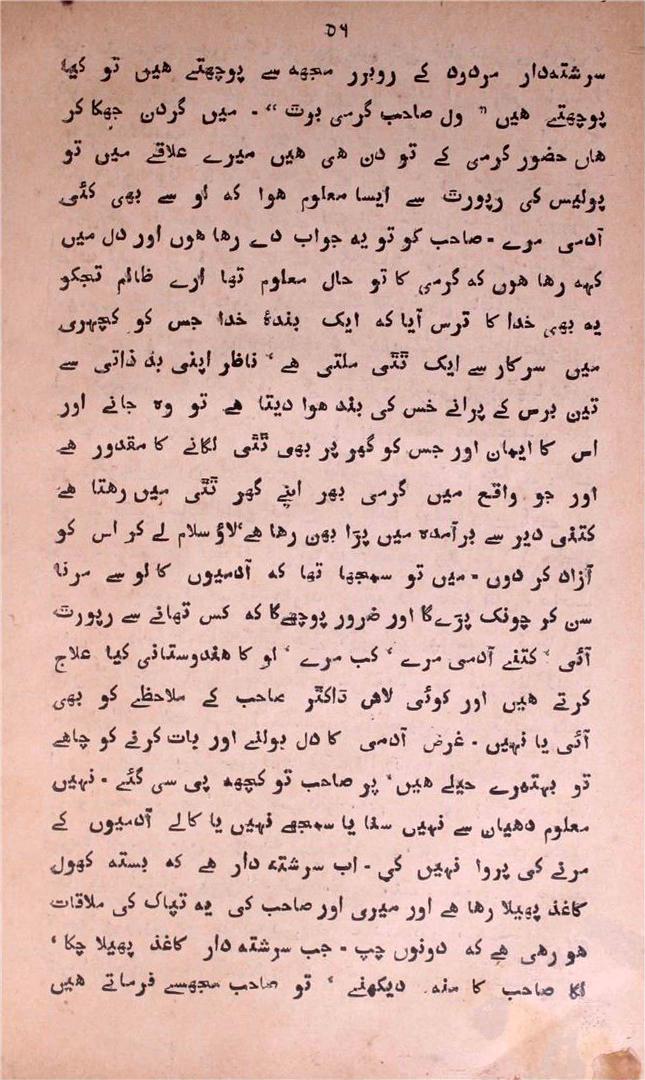 ٥٦
سرشتہ‌دار مردود کے روبرر مجھہ سے پوچھتے ھیں تو کیا
پوچھتے ھیں ” ول صاحب گرمی بوت “ - میں گردن جھکا کر
ھاں حضور گرمی کے تو دن ھی ھیں میرے علاقے میں تو
پولیس کی رپورت سے ایسا معلوم ھوا کہ لو سے بھی کئی
آدمی مرے - صاحب کو تو یہ جواب دے رھا ھوں اور دل میں
کہہ رھا ھوں کہ گرمی کا تو حال معلوم تھا ارے ظالم تجکو
یہ بھی خدا کا ترس آیا کہ ایک بندۂ خدا جس کو کچہری
میں سرکار سے ایک ٹٹی ملتی ھے ‘ ناظر اپنی بد ذاتی سے
تین برس کے پرانے خس کی بندھوا دیتا ھے تو وہ جانے اور
اس کا ایمان اور جس کو گھر پر بھی ٹٹی لگانے کا مقدور ھے
اور جو واقع میں گرمی بھر اپنے گھر ٹٹی میں رھتا ھے
کتنی دیر سے برآمدہ میں پڑا بھن رھا ھے‘ لاؤ سلام لے کر اس کو
آزاد کر دوں - میں تو سمجھا تھا کہ آدمیوں کا لو سے مرنا
سن کر چونک پڑےگا اور ضرور پوچھےگا کہ کس تھانے سے رپورت
آئی ‘ کتنے آدمی مرے ‘ کب مرے ‘ لو کا ھندوستانی کیا علاج
کرتے ھیں اور کوئی لاش ڈاکٹر صاحب کے ملاحظے کو بھی
آئی یا نہیں - غرض آدمی کا دل بولنے اور بات کرنے کو چاھے
تو بہتیرے حیلے ھیں‘ پر صاحب تو کچھہ پی سی گئے - نہیں
معلوم دھیان سے نہیں سنا یا سمجھے نہیں یا کالے آدمیوں کے
مرنے کی پروا نہیں کی - اب سرشتہ دار ھے کہ بستہ کھول
کاغذ پھیلا رھا ھے اور میری اور صاحب کی یہ تپاک کی ملاقات
ھو رھی ھے کہ دونوں چپ - جب سرشتہ دار کاغذ پھیلا چکا ‘
لگا صاحب کا منہ دیکھنے ‘ تو صاحب مجھسے فرماتے ھیں